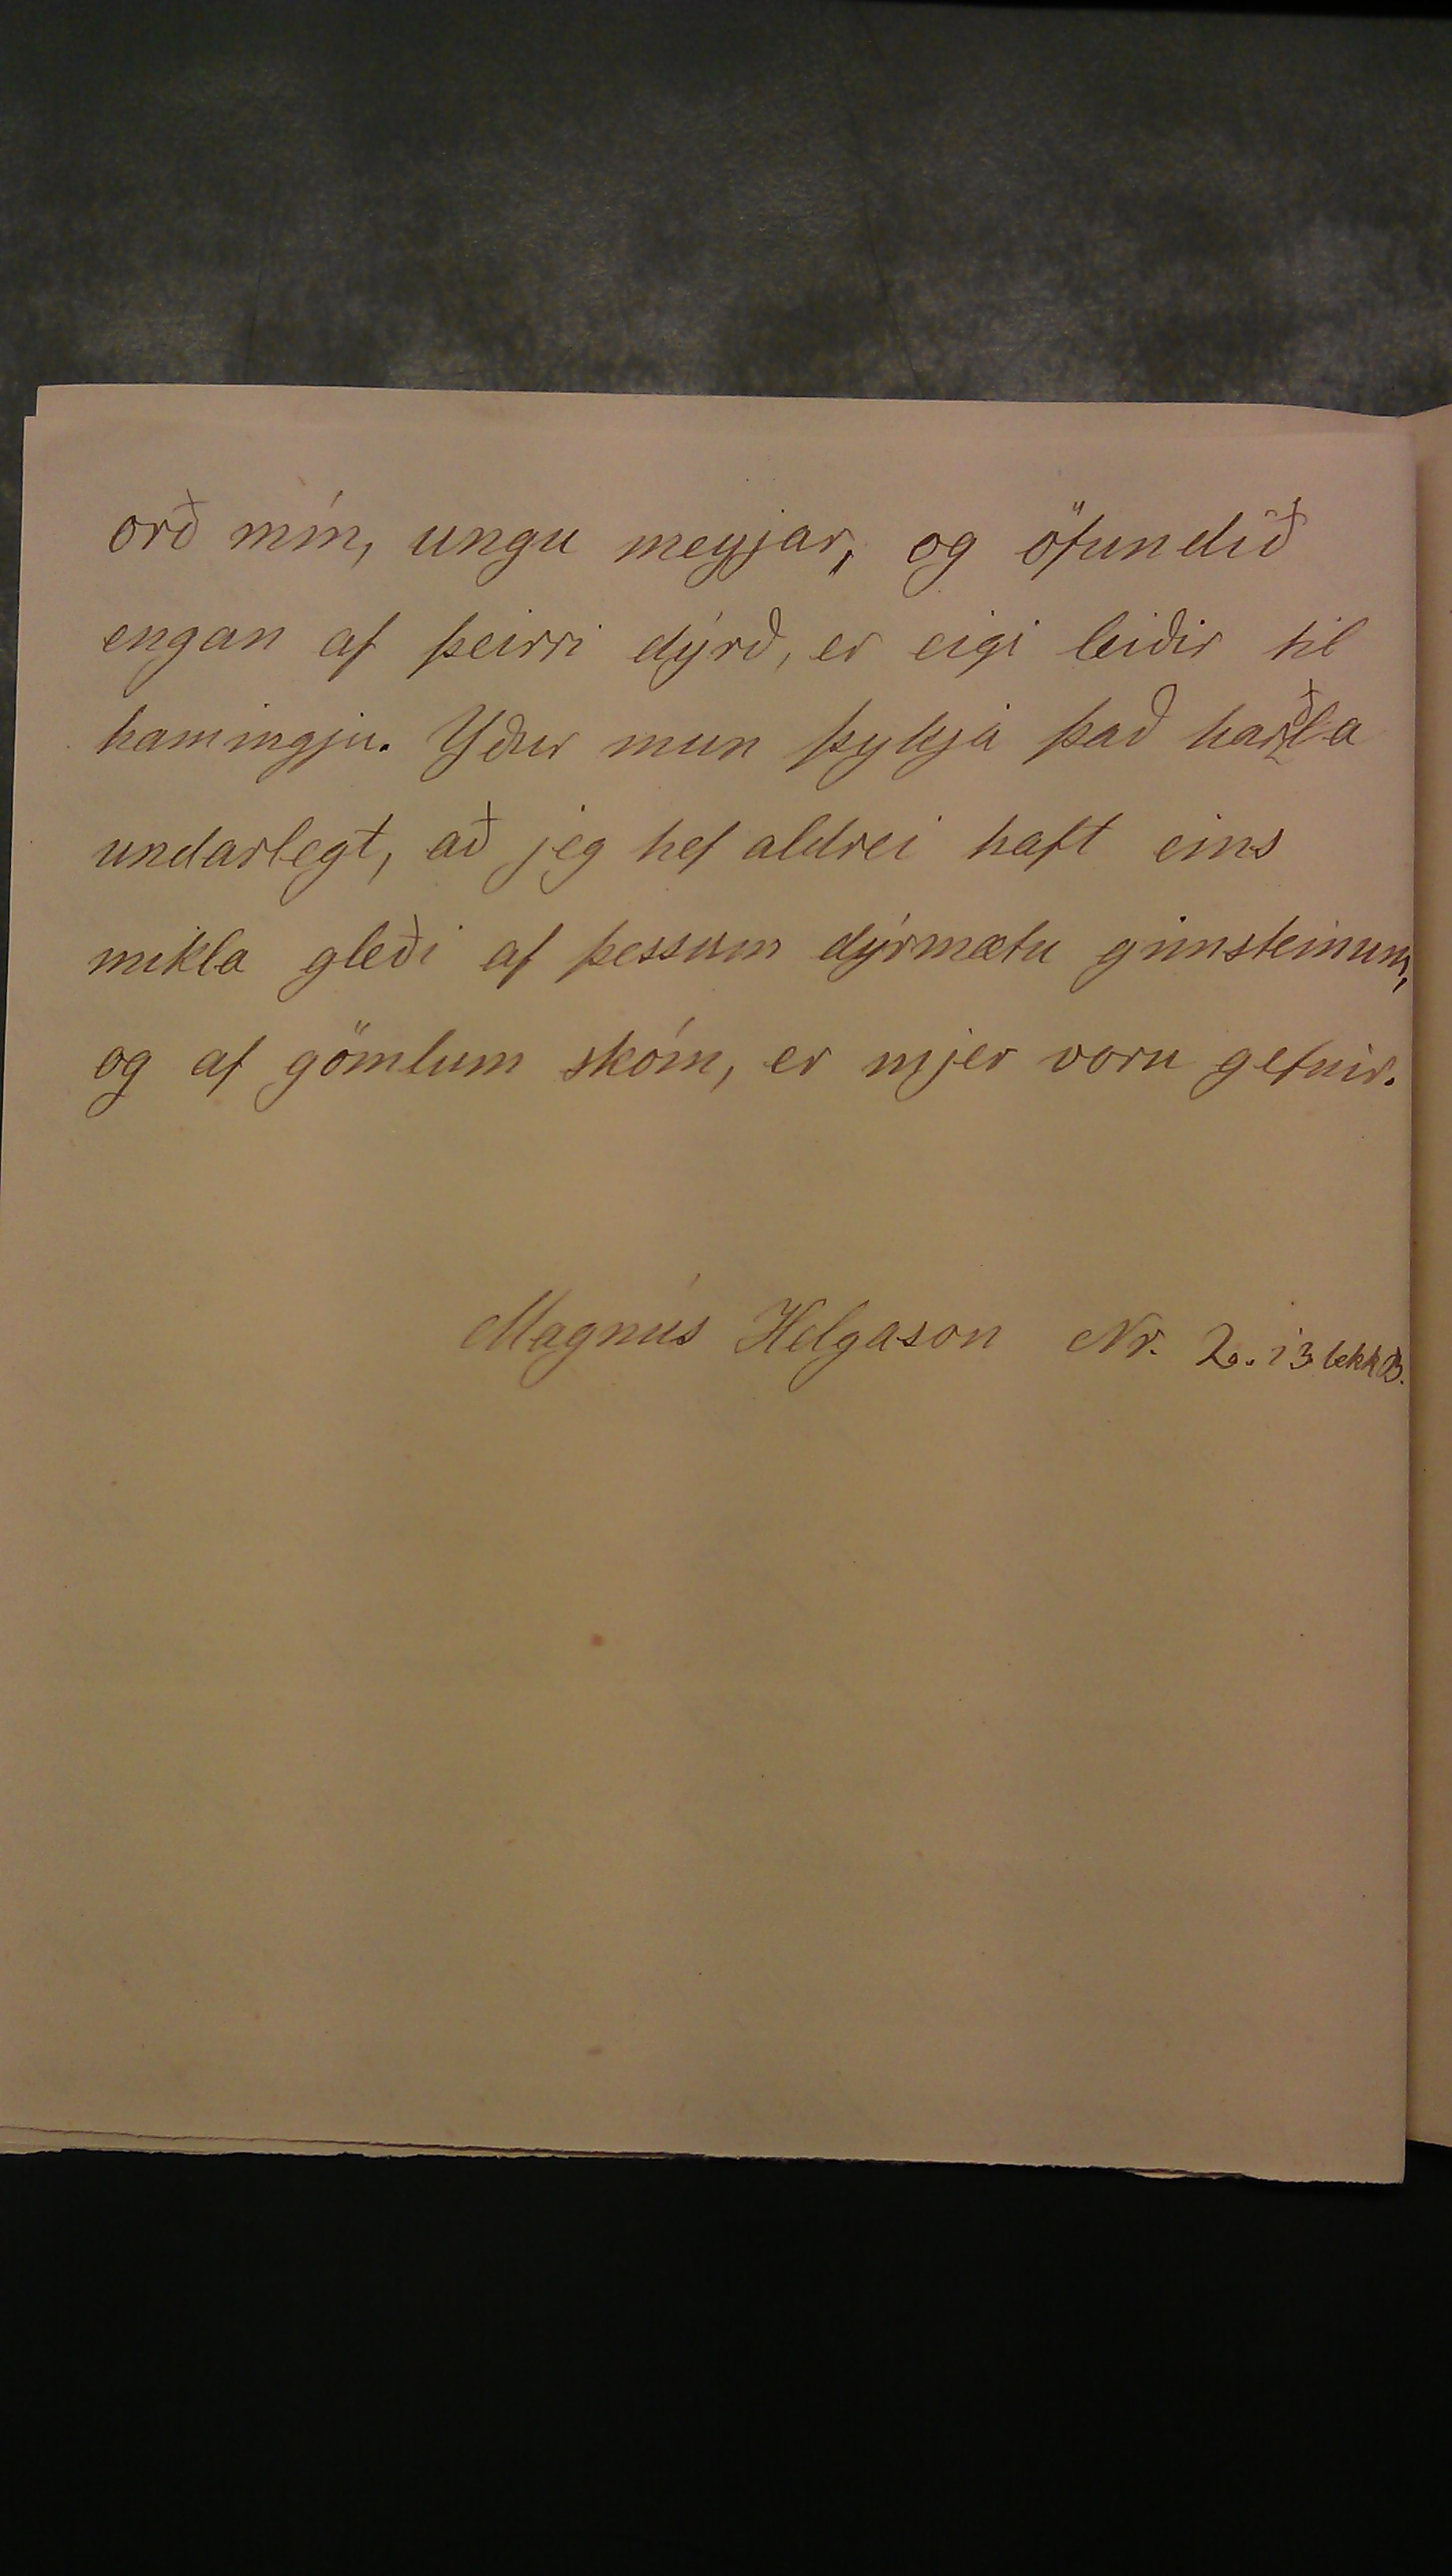 orð mín, ungu meyjar, og öfundið
engan af þeirri dýrð, er eigi leiðir til
hamingju. Yður mun þykja það harðla
undarlegt, að jeg hef aldrei haft eins
mikla gleði af þessum dýrmætu gimsteinum,
og af gömlum skóm, er mjer voru gefnir.
Magnús Helgason Nr. 2. í 3 bekk B.